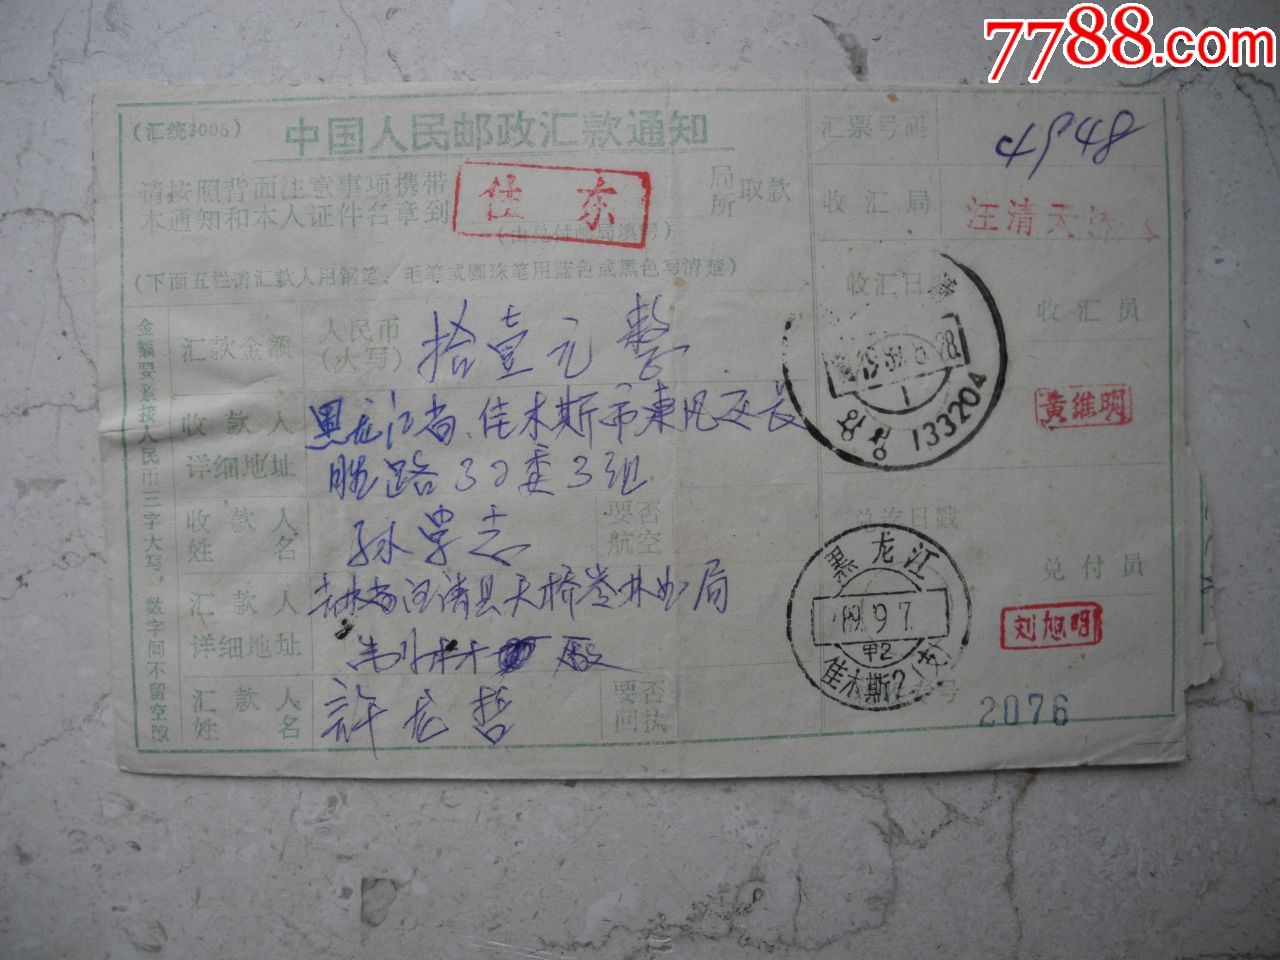 7788.com
(汇统3005)
中国人民邮政汇款通知
请按照背面注意事项携带
本通知和本人证件名章到
佳东
局
所
取款
(由兑付邮局填写)
(下面五栏请汇款人用钢笔、毛笔或圆珠笔用蓝色或黑色写清楚)
金额要紧接人民币三字大写,数字间不留空隙
汇款金额
人民币
(大写)
拾壹元整
收款人
详细地址
黑龙江省、佳木斯市东风区长
胜路32委3组
收款人
姓名
孙学志
要否
航空
汇款人
详细地址
吉林省汪清县天桥岭林业局
制材厂
汇款人
姓名
許龙哲
要否
回执
汇票号码
4948
收汇局
汪清天桥
收汇日戳
收汇员
133204
黄维明
兑讫日戳
黑龙江
89.9.7
甲2
佳木斯2
兑付员
刘旭明
号
2076